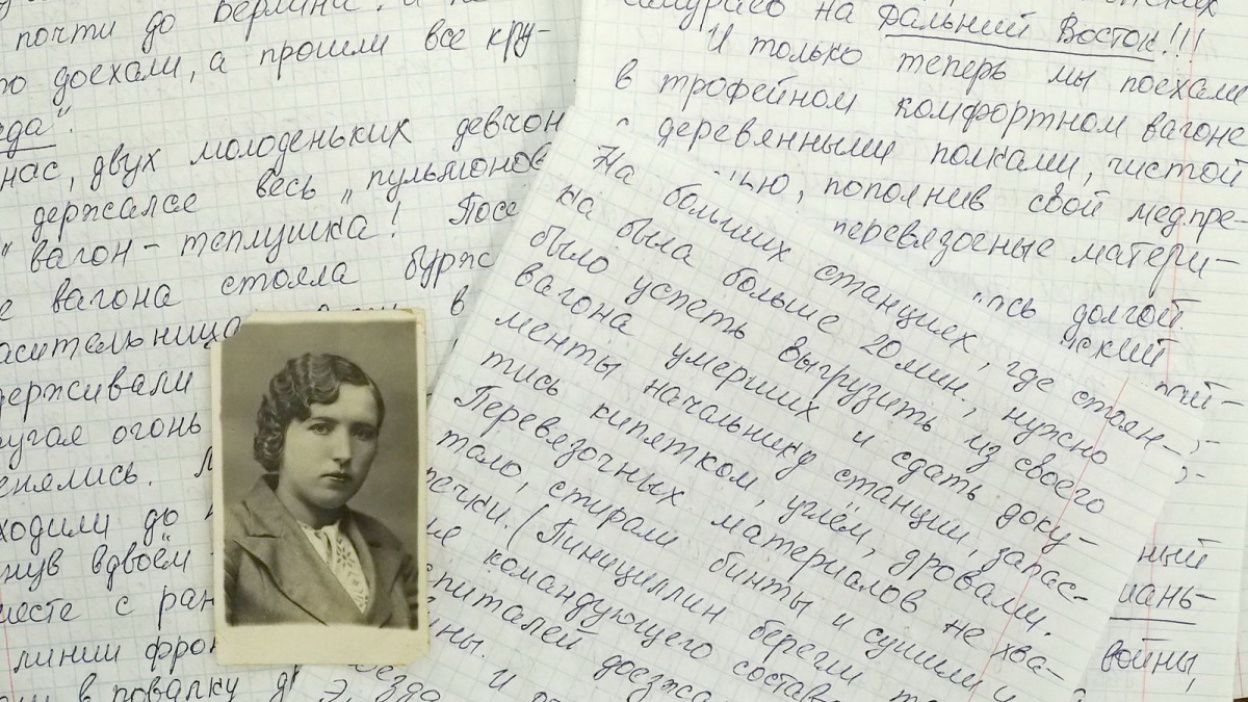 почти до Берлина! и
доехали, а прошли все кру-
да".
нас, двух молоденьких девчон
держался весь „пульмонов
" вагон-теплушка! Посе
вагона стояла буржс
асительница в
держивали
ругая огонь
енялись.
ходили до
нув вдвоём
месте с ран
линии фрон
в повалку д
самураев на Дальний Восток!!!
И только теперь мы поехали
в трофейном комфортном вагоне
с деревянными полками, чистой
ью, пополнив свой медпре-
перевязочные матери-
ась долгой
нский
пай-
ный
мань-
войны,
На больших станциях, где стоян-
ка была больше 20 мин., нужно
было успеть выгрузить из своего
вагона умерших и сдать доку-
менты начальнику станции, запас-
тись кипятком, углём, дровами.
Перевязочных материалов не хва-
тало, стирали бинты и сушили у
печки. (Пинициллин берегли
командующего состава
спиталей доезжа
ины. и
езда